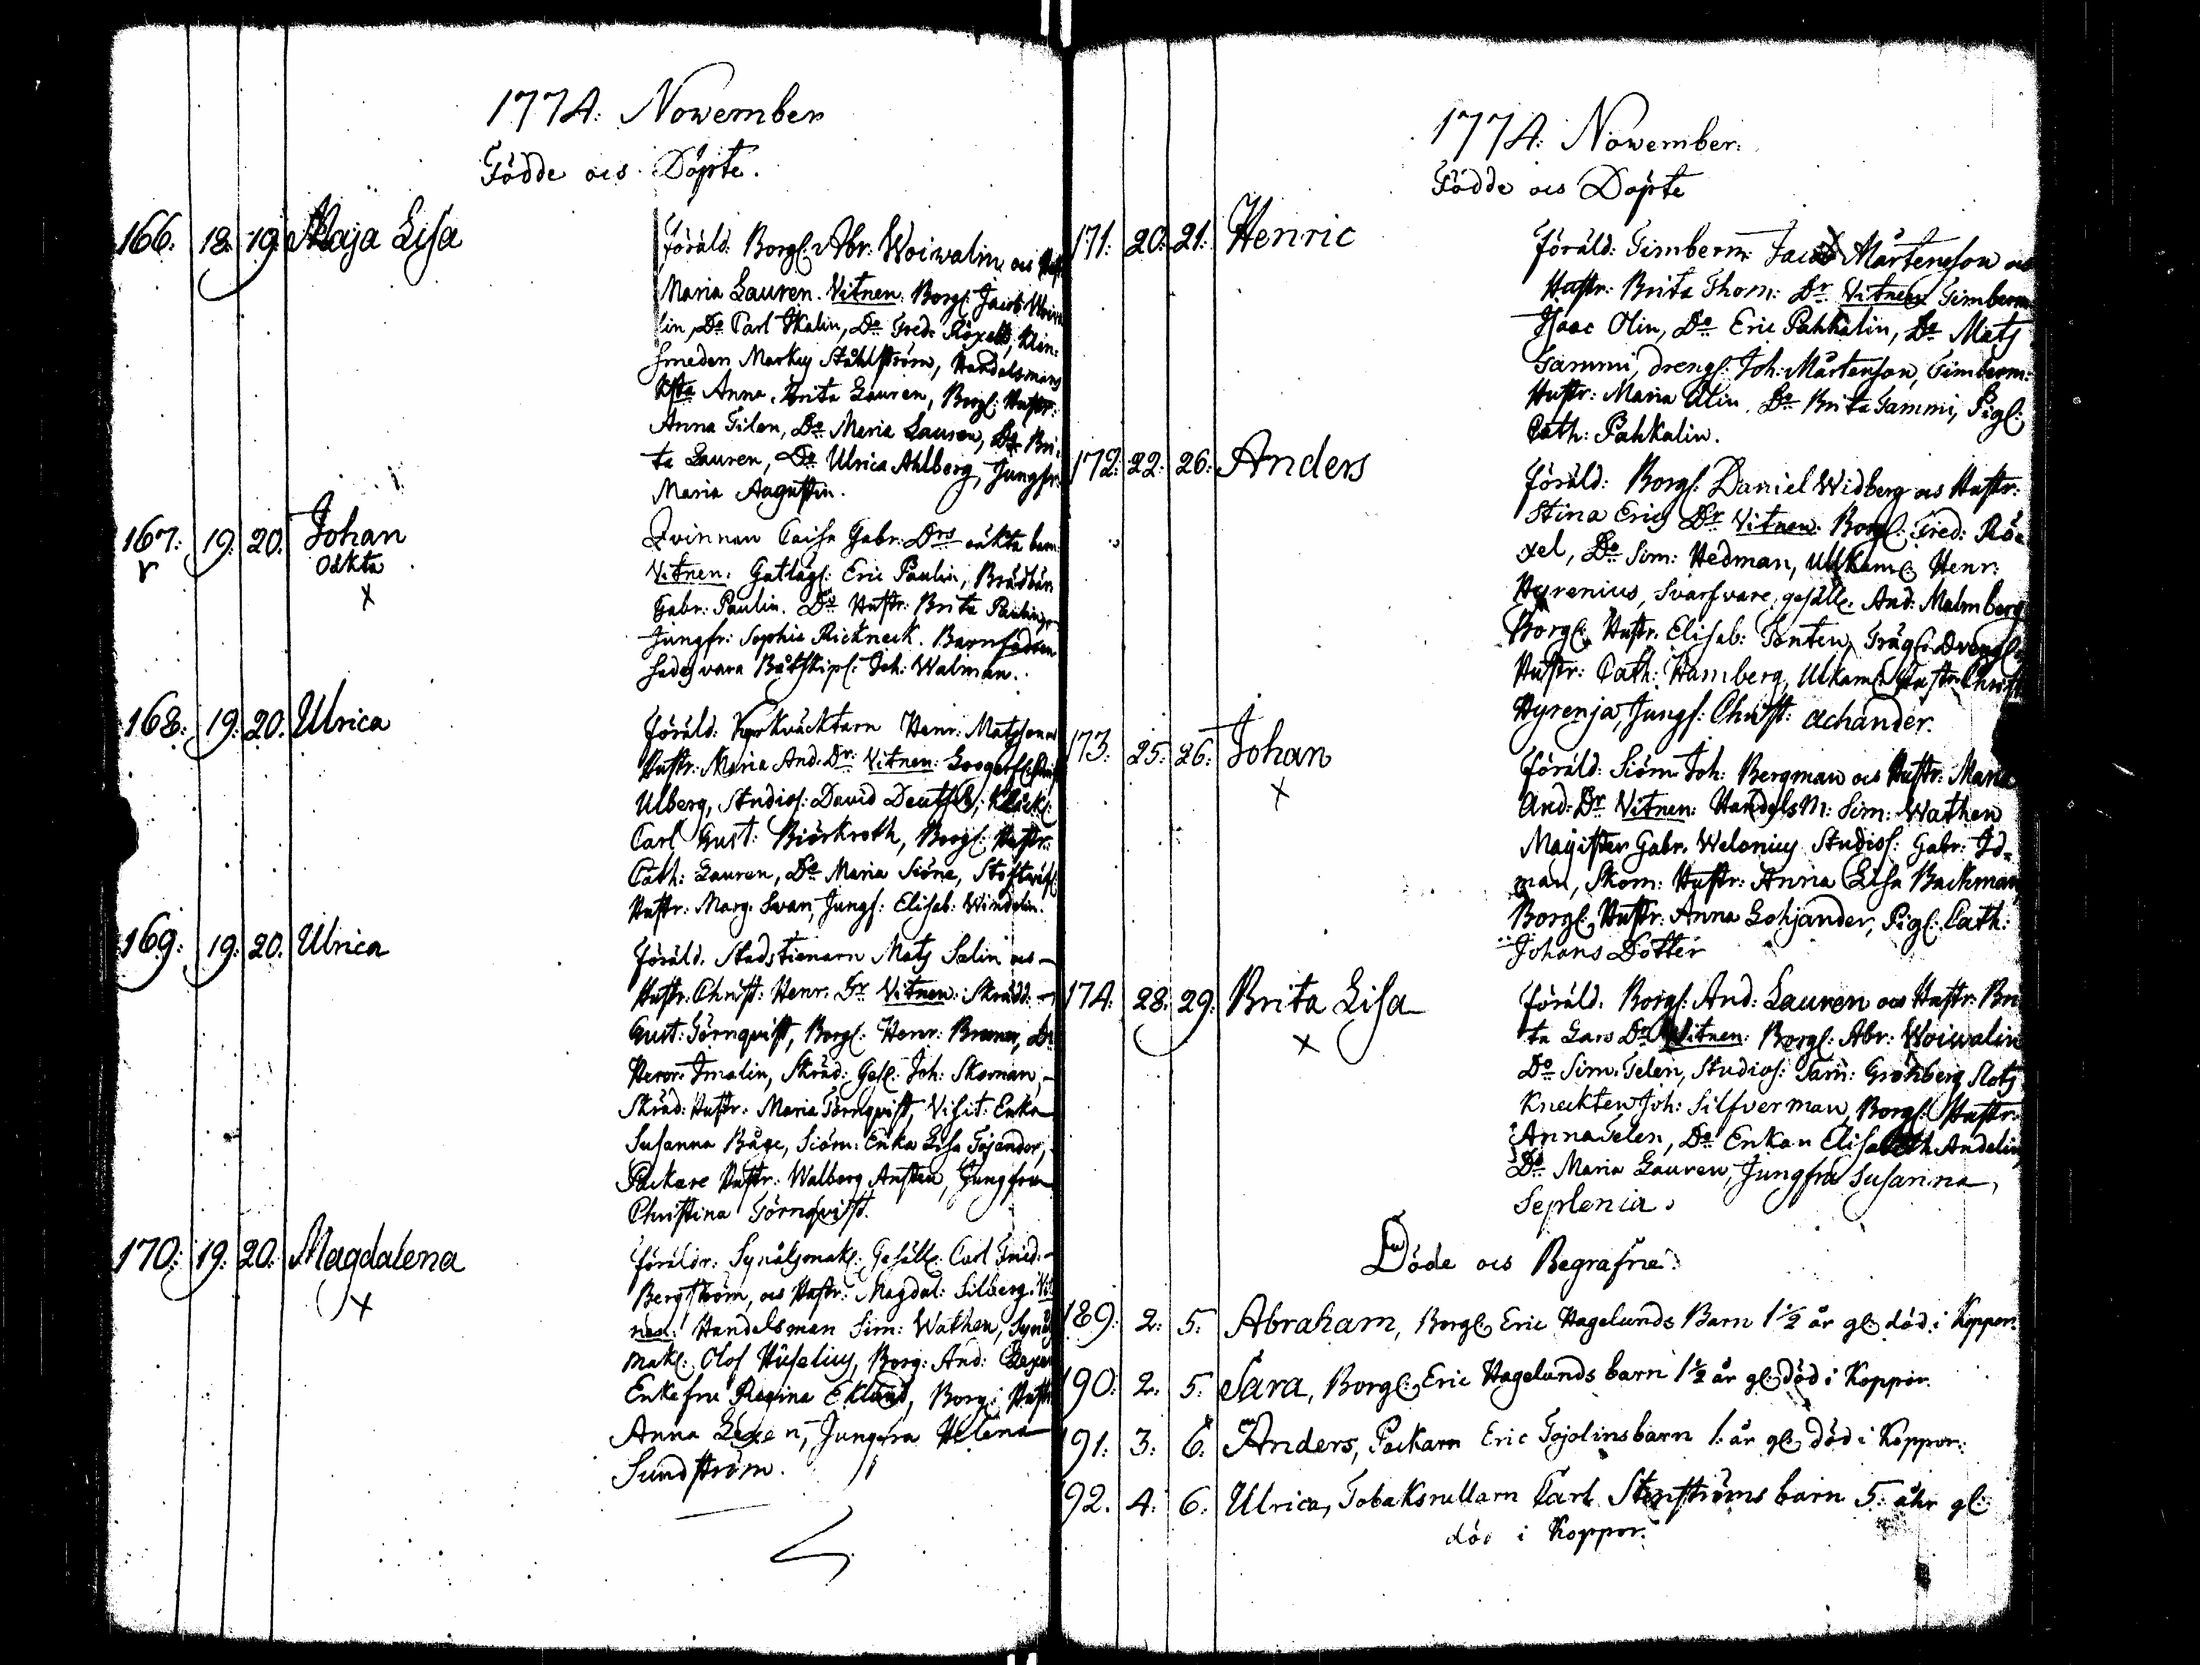 1774: November
Födde och Döpte.
166. 18. 19. Maja Lisa
Föräld: Borgl: Abr: Woiwalin och Hustr:
Maria Lauren. Vitnen: Borgl: Jacob Woiwa
lin, Do Carl Skalin, Do Fred: Röxell, Klen:
smeden Markus Ståhlström, Handelsmans
Anna Brita Lauren, Borgl: Hustr:
Anna Tilen, Do Maria Lauren, Do Bri:
ta Lauren, Do Ulrica Ahlberg, Jungfr:
Maria Augustin.
167: 19: 20. Johan
oäkta
Qvinnan Caisa Gabr: Drs oäkta barn
Vitnen: Gatlägl: Eric Paulin, Brädbär:
Gabr: Paulin. Do Hustr: Brita Paulin,
Jungfr: Sophia Rickneck. Barnfadren
sades vara Båtskipl: Joh: Walman.
168: 19: 20. Ulrica
Föräld: Henr: Matsson och
Hustr: Maria And: Dr: Vitnen:
Ulberg, Studios: David Deutsch, Klåck:
Carl Gust: Biörkroth, Borgl: Hustr:
Cath: Lauren, Do Maria Siöne,
Hustr: Marg: Svan, Jungf: Elisab: Windelin.
169: 19: 20. Ulrica
Föräld. Stadstienarn Mats Salin och
Hustr: Christ: Henr: Dr Vitnen: Skrädd:
Gust: Törnqvist, Borgl: Henr: Bremer, Do
Henr: Imalin, Skräd: Gesl: Joh: Skoman,
Skräd: Hustr: Maria Törnqvist, Visit: Enka
Susanna Båge, Siöm: Enka Lisa Tojander,
Packare Hustr: Walborg Austen, Jungfru
Christina Törnqvist.
170: 19: 20: Magdalena
Föräldr: Synålsmak: Gesäll: Carl Fried:
Bergström, och Hustr: Magdal: Silberg. Vit
nen: Handelsman Sim: Wathen, Synåls
mak: Olof Huselius, Borg: And: Lexen
Enkefru Regina Eklund, Borg: Hustr
Anna Lexen, Jungfru Helena
Sundström.
1774: November:
Födde och Döpte
171: 20: 21: Henric
Föräld: Timberm: Jacob Mårtensson och
Hustr: Brita Thom: Dr Vitnen Timberm
Isaac Olin, Do Eric Pahkalin, Do Mats
Sammi, drengl: Joh: Mårtenson, Timberm:
Hustr: Maria Olin, Do Brita Sammi, Pigl:
Cath: Pahkalin.
172: 22: 26: Anders
Föräld: Borgl: Daniel Widberg och Hustr:
Stina Erics Dr Vitnen: Borgl: Fred: Rö:
xel, Do Sim: Hedman, Ullkam: Henr:
Hyrenius, Svarfvare gesälle And: Malmberg
Borgl: Hustr: Elisab: Tenten, Drengl:
Hustr: Cath: Hamberg, Ulkam: Hustr: Christ
Hyrenja, Jungf: Christ: Achander.
173: 25: 26: Johan
Föräld: Siöm: Joh: Bergman och Hustr: Maria
And: Dr Vitnen: Handels M: Sim: Wathen
Magister Gabr: Welonius Studios: Gabr: Id=
man, Skom: Hustr: Anna Lisa Backman,
Borgl: Hustr: Anna Lohjander, Pigl: Cath:
Johans Dotter
174: 28: 29: Brita Lisa
Föräld: Borgl: And: Lauren och Hustr: Bri
ta Lars Dr Vitnen: Borgl: Abr: Woiwalin
Do Sim: Telen, Studios: Sam: Grönberg, Slots
Kneckten Joh: Silfverman, Borgl: Hustr:
Anna Telen, Do Enkan Elisabeth Andelin,
Do Maria Lauren, Jungfru Susanna
Seplenia.
Döde och Begrafne:
189: 2: 5: Abraham, Borgl: Eric Hagelunds Barn 1 1/2 år gl: död i Koppor:
190: 2: 5: Sara, Borgl: Eric Hagelunds barn 1 1/2 år gl: död i Koppor.
191: 3: 6: Anders, Packarn Eric Tojolins barn 1: år gl: död i Koppor:
192. 4: 6: Ulrica, Tobaksrullarn Carl Stenströms barn 5: åhr gl:
död i Koppor.